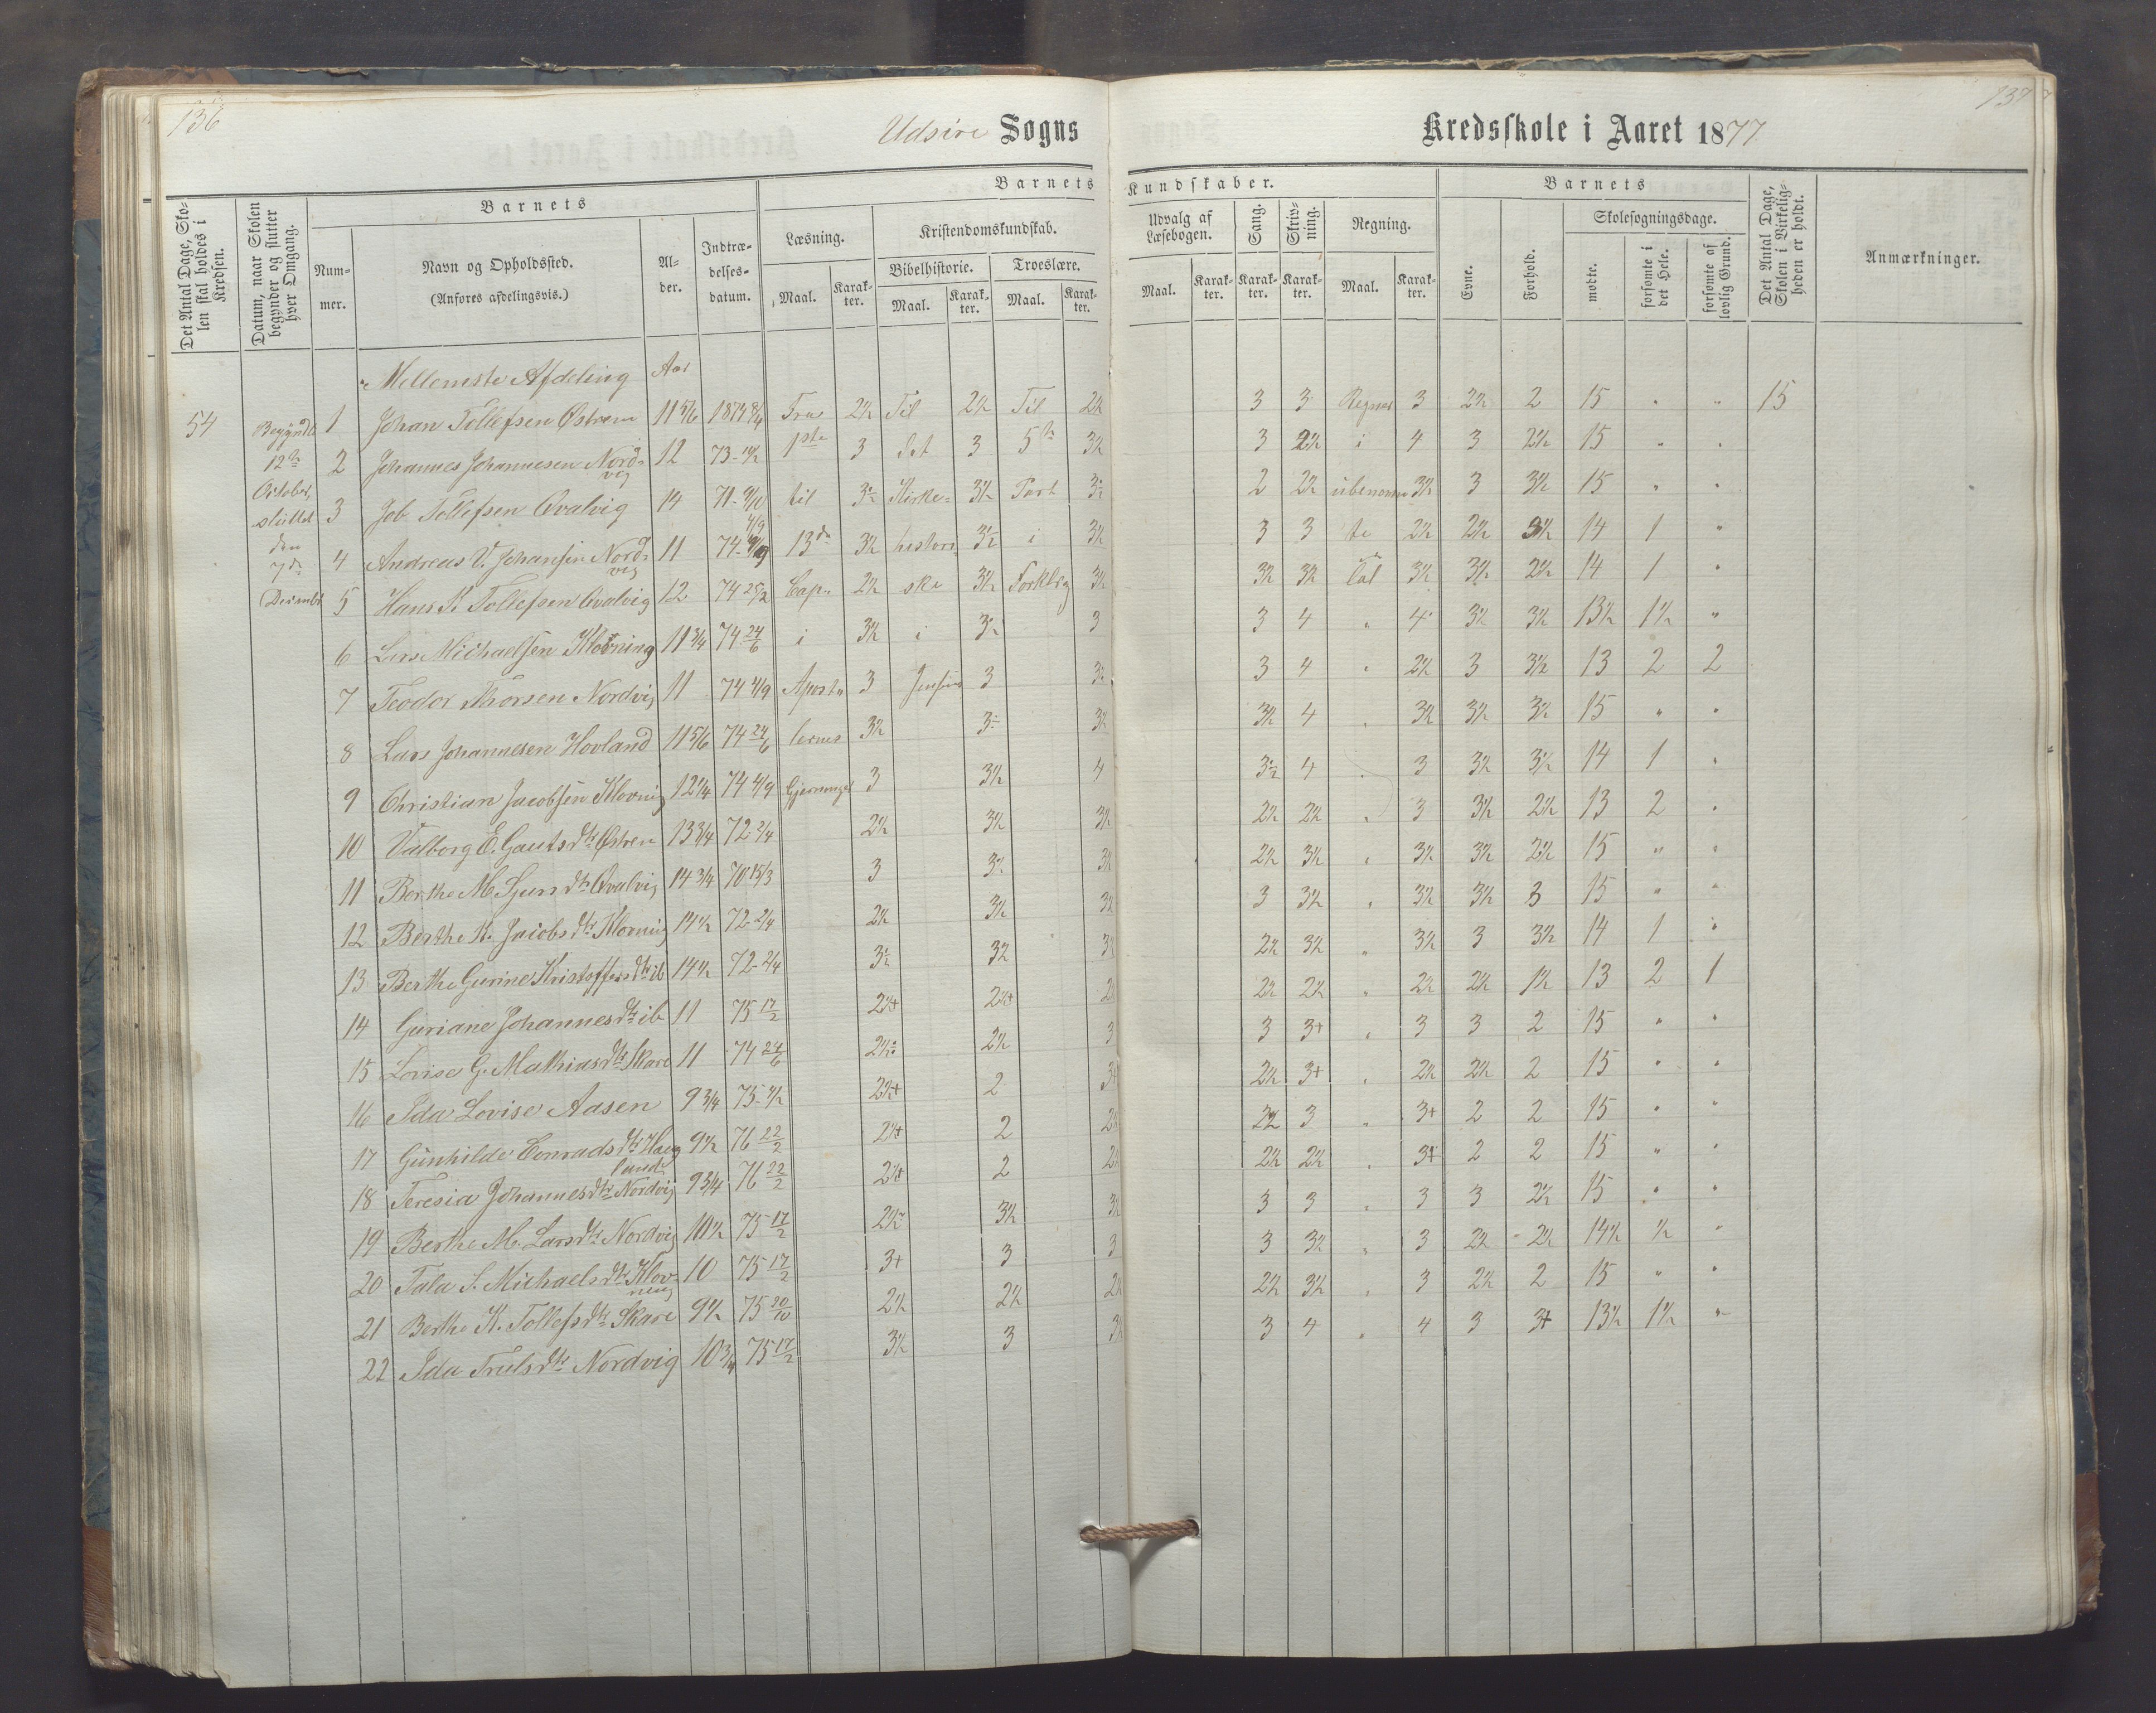 136
137
Udsire Sogns
Kredsskole i Aaret 1877
Det Antal Dage, Skolen skal holdes i Kredsen.
Datum, naar Skolen begynder og slutter hver Omgang.
Barnets
Nummer.
Navn og Opholdssted.
(Anføres afdelingsvis.)
Alder.
Indtrædelsesdatum.
Barnets Kundskaber.
Læsning.
Maal. Karakter.
Kristendomskundskab.
Bibelhistorie. Troeslære.
Maal. Karakter. Maal. Karakter.
Udvalg af Læsebogen.
Maal. Karakter.
Sang. Karakter.
Skrivning. Karakter.
Regning.
Maal. Karakter.
Barnets
Evne. Forhold.
Skolesøgningsdage.
mødte. forsømte i det Hele. forsømte af lovlig Grund.
Det Antal Dage, Skolen i Virkeligheden er holdt.
Anmærkninger.
Mellemste Afdeling Aar
54 Begyndt 12te October, sluttet den 7de December
1 Johan Tollefsen Østrem 11 5/6 Fra 2½ Til 2½ Til 2½ 3 3 Regnet 3 2½ 2 15 " " 15
2 Johannes Johannesen Nordvig 12 1ste 3 det 3 5te 3½ 3 2½ i 4 3 2½ 15 " "
3 Job Tollefsen Qvalvig 14 til Kirke- 3½ Part 2 2½ ubenævn 3½ 3 3½ 15 " "
4 Andreas V. Johansen Nordvig 11 13de 3½ histori 3½ i 3½ 3 3 te 2½ 2½ 3½ 14 1 "
5 Hans K. Tollefsen Qvalvig 12 74 25/2 Cap. 2½ ske 3½ Forklrg 3½ 3½ 3½ Tal 3½ 3½ 2½ 14 1 "
6 Lars Michaelsen Klovning 11¾ 74 24/6 i 3½ i 3½ 3 3 4 " 4 3½ 3½ 13½ 1½ "
7 Teodor Thorsen Nordvig 11 74 4/9 Apost 3 3 3 4 " 2½ 3 3½ 13 2 2
8 Lars Johannesen Hovland 11 5/6 74 24/6 lernes 3½ 3½ 4 " 3½ 3½ 3½ 15 " "
9 Christian Jacobsen Klovning 12¼ 74 4/9 Gjerninger 3 3½ 4 3½ 4 " 3 3½ 3½ 14 1 "
10 Valborg E. Gautsdtr Østrem 13¾ 72 2/4 2½ 3½ 3½ 2½ 2½ " 3 3½ 2½ 13 2 "
11 Berthe M. Sjursdtr Qvalvig 14¾ 70 15/3 3 3½ 3½ 2½ 3½ " 3½ 3½ 2½ 15 " "
12 Berthe K. Jacobsdtr Klovning 14½ 72 2/4 2½ 3½ 3½ 3 3½ " 3½ 3½ 3 15 " "
13 Berthe Gurine Kristoffersdtr ib 14½ 72 2/4 3½ 3½ 2½ 3½ " 3½ 3 3½ 14 1 "
14 Guriane Johannesdtr ib 11 75 17/2 2½+ 2½+ 2½ 2½ " 2½ 2½ 1½ 13 2 1
15 Lovise G. Mathiasdtr Skare 11 74 24/6 2½ 3 3 3+ " 3 3 2 15 " "
16 Ida Lovise Aasen 9¾ 2½+ 2 3+ 2½ 3+ " 2½ 2½ 2 15 " "
17 Gunhilde Conradsdtr Haugland 9½ 76 22/2 2½+ 2 3 " 3+ 2 2 15 " "
18 Teresia Johannesdtr Nordvig 9¾ 76 22/2 2½+ 2 2½ 2½ " 3+ 2 2 15 " "
19 Berthe M. Larsdtr Nordvig 10½ 75 17/2 2½ 3½ 3½ 3 3 " 3 3 2½ 15 " "
20 Tala S. Michaelsdtr Klovning 10 75 17/2 3+ 3 3 3 3½ " 3 2½ 2½ 14½ ½ "
21 Berthe K. Tollefsdtr Skare 9½ 75 20/10 2½ 2½ 2½ 2½ 3½ " 3 2½ 2 15 " "
22 Ida Trulsdtr Nordvig 10¾ 75 17/2 3½ 3 3½ 3 4 " 4 3 3+ 13½ 1½ "